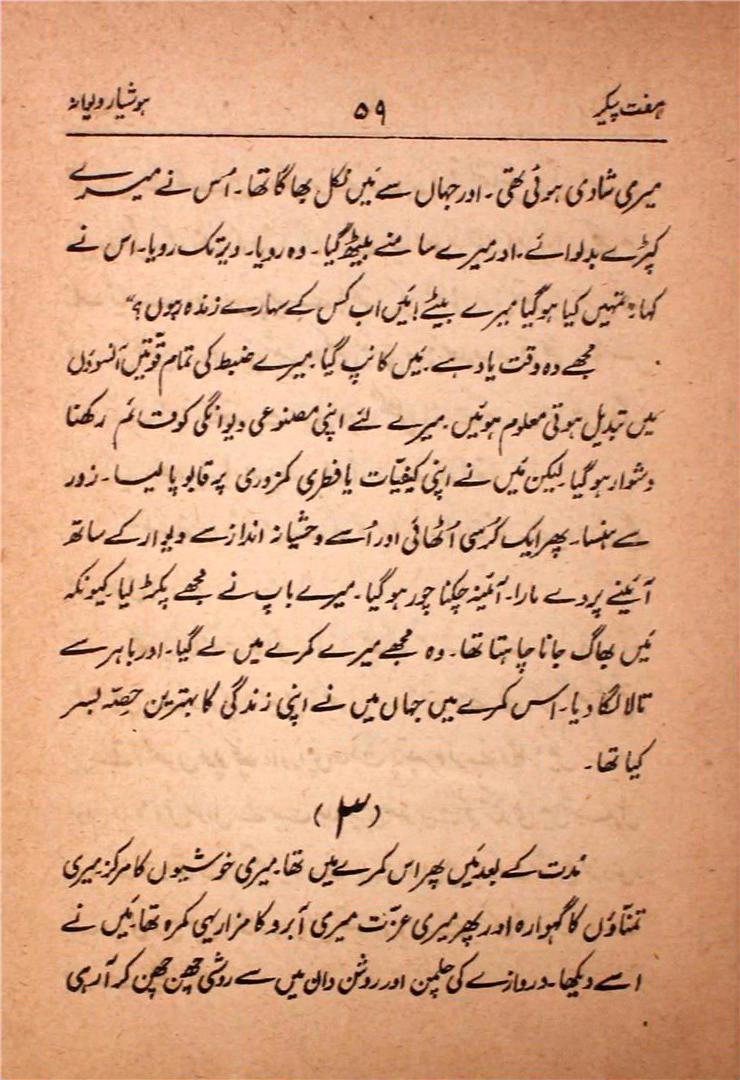 ہفت پیکر ۵۹ ہوشیار دیوانہ
میری شادی ہوئی تھی۔ اور جہاں سے مَیں نکل بھاگا تھا۔ اُس نے میرے
کپڑے بدلوائے۔ اور میرے سامنے بیٹھ گیا۔ وہ رویا۔ دیر تک رویا۔ اس نے
کہا: "تمہیں کیا ہو گیا میرے بیٹے! مَیں اب کس کے سہارے زندہ رہوں؟"
مجھے وہ وقت یاد ہے۔ مَیں کانپ گیا۔ میرے ضبط کی تمام قوّتیں آنسوؤں
میں تبدیل ہوتی معلوم ہوئیں۔ میرے لئے اپنی مصنوعی دیوانگی کو قائم رکھنا
دشوار ہو گیا۔ لیکن مَیں نے اپنی کیفیّات یا فطری کمزوری پر قابو پا لیا۔ زور
سے ہنسا۔ پھر ایک کُرسی اُٹھائی اور اُسے وحشیانہ انداز سے دیوار کے ساتھ
آئینے پر دے مارا۔ آئینہ چکنا چور ہو گیا۔ میرے باپ نے مجھے پکڑ لیا۔ کیونکہ
مَیں بھاگ جانا چاہتا تھا۔ وہ مجھے میرے کمرے میں لے گیا۔ اور باہر سے
تالا لگا دیا۔ اس کمرے میں جہاں میں نے اپنی زندگی کا بہترین حِصّہ بسر
کیا تھا۔
(۳)
مُدت کے بعد مَیں پھر اس کمرے میں تھا۔ میری خوشیوں کا مرکز۔ میری
تمنّاؤں کا گہوارہ اور پھر میری عزّت میری آبرو کا مزار یہی کمرہ تھا۔ مَیں نے
اسے دیکھا۔ دروازے کی چلمن اور روشن دان میں سے روشنی چھن چھن کر آ رہی